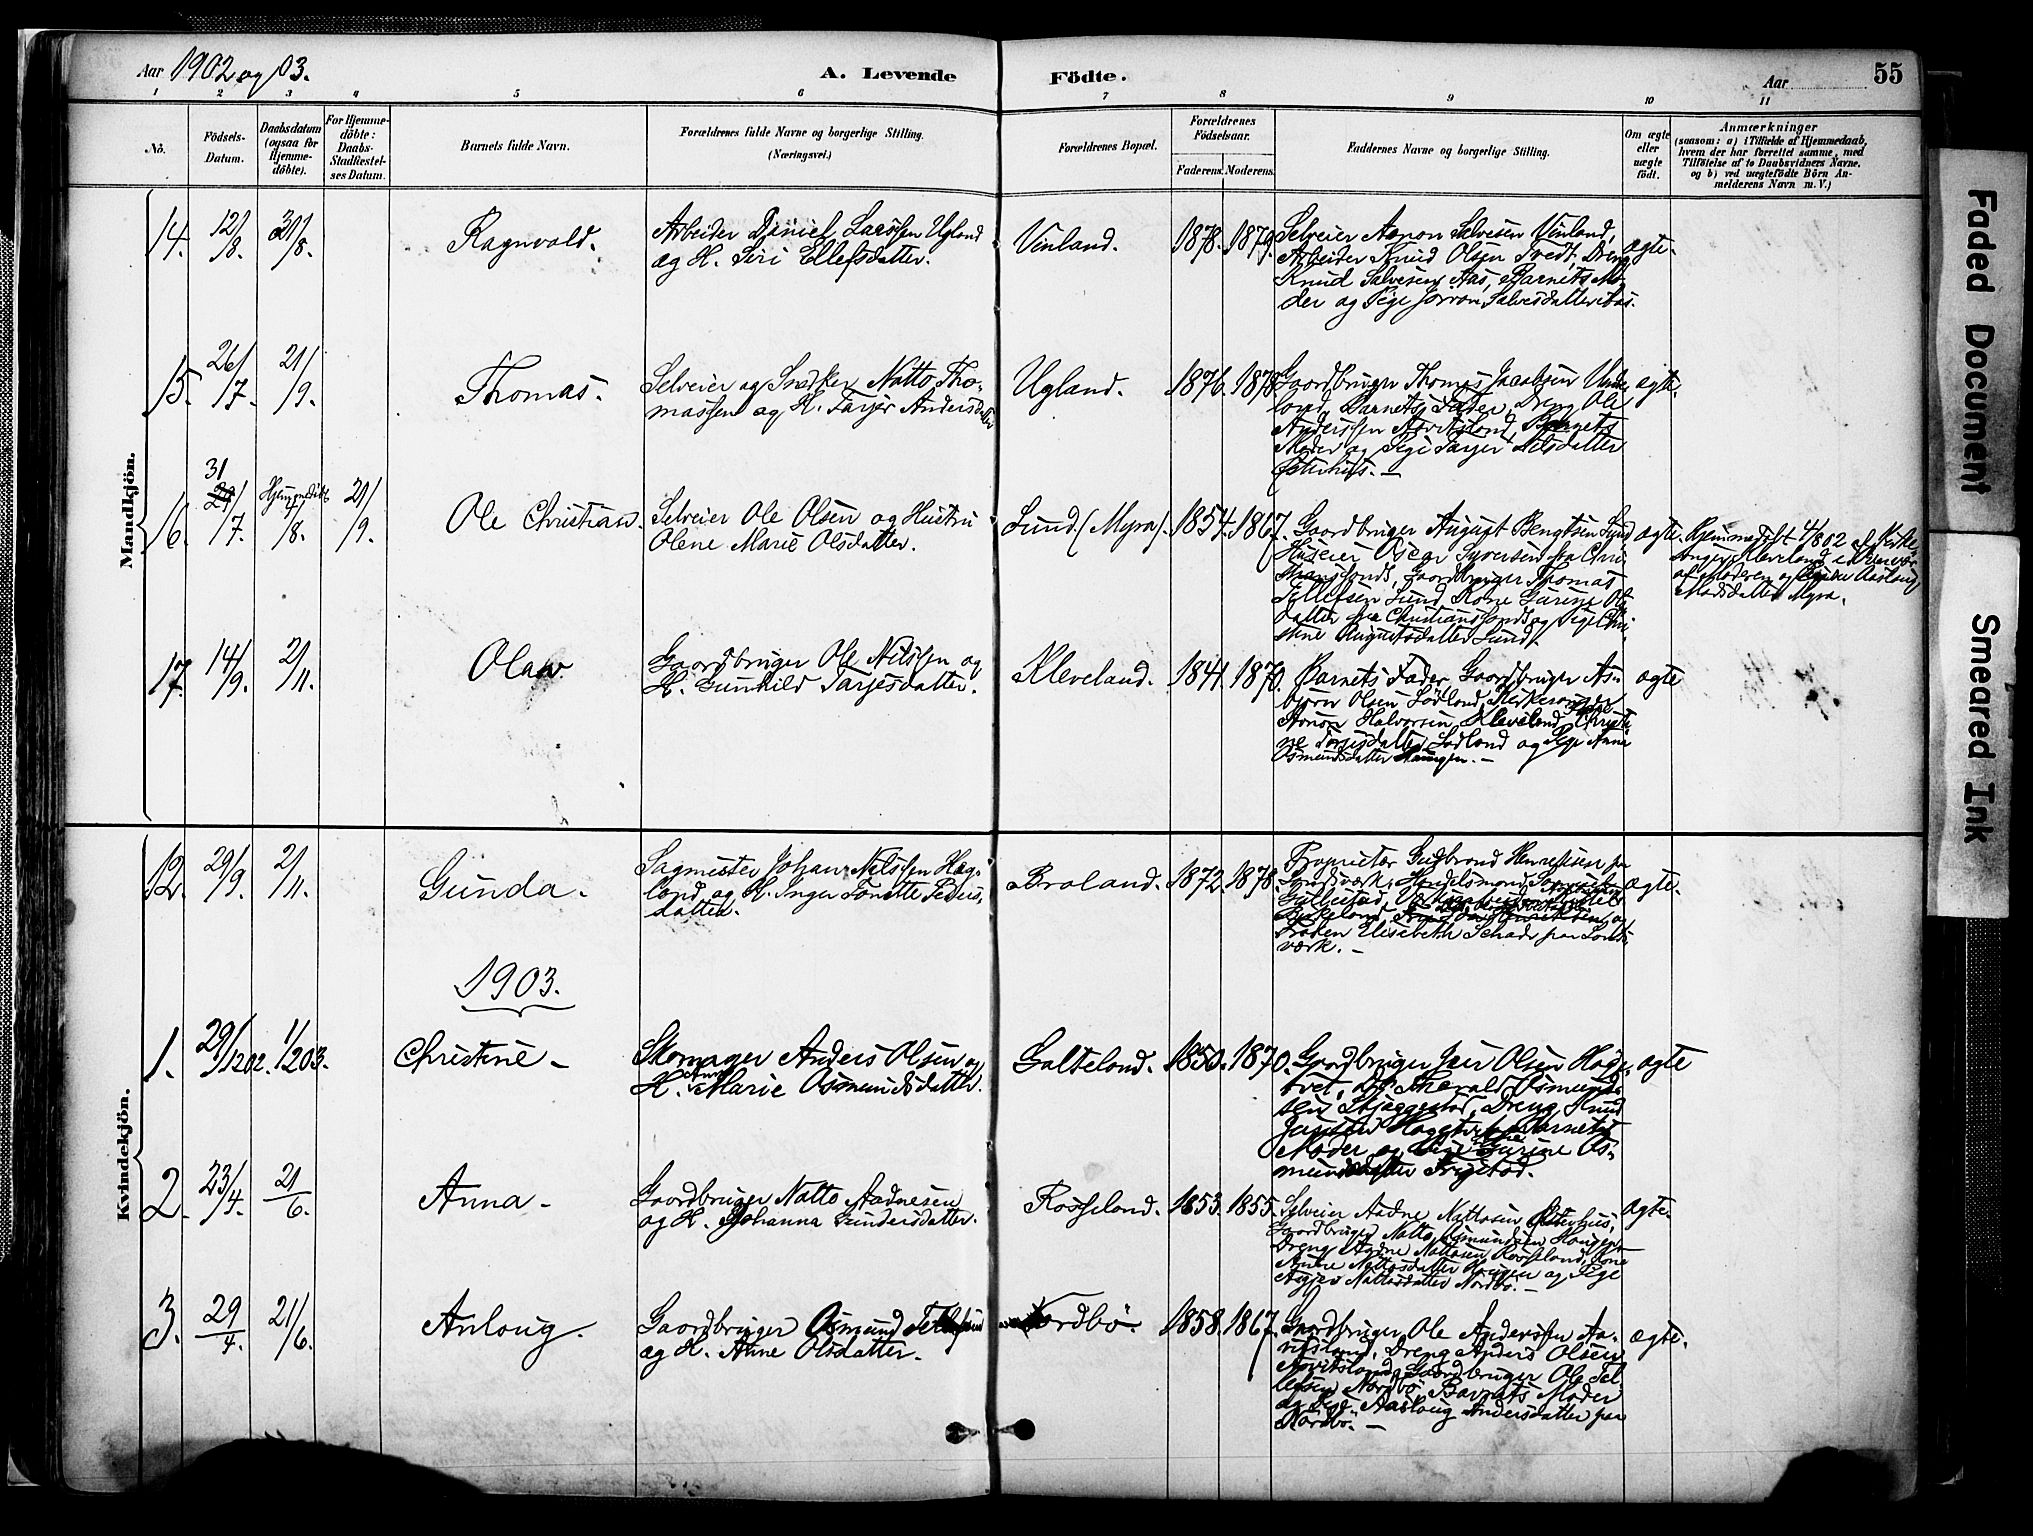 Aar 1902 og 03.
A. Levende Födte.
Aar
55
1 2 3 4 5 6 7 8 9 10 11
No.
Födsels-Datum.
Daabsdatum (ogsaa for Hjemmedöbte).
For Hjemmedöbte: Daabs-Stadfestelses Datum.
Barnets fulde Navn.
Forældrenes fulde Navne og borgerlige Stilling.
(Næringsvei.)
Forældrenes Bopæl.
Forældrenes Födselsaar.
Faderens. Moderens.
Faddernes Navne og borgerlige Stilling.
Om ægte eller uægte födt.
Anmærkninger
(saasom: a) i Tilfælde af Hjemmedaab,
hvem der har forrettet samme, med
Tilföielse af to Daabsvidners Navne,
og b) ved uægtefödte Börn Anmelderens Navn m. V.)
Mandkjön.
14. 12/8. 31/8. Ragnvald.
Arbeider Daniel Larssen Ugland
og H. Siri Ellefsdatter.
Vinland. 1878. 1879.
Selveier Aanon Salvesen Vinland,
Arbeider Knud Olsen Tvedt, Dreng
Knud Salvesen Aas, Barnets Mo-
der og Pige Jorron Salvesdatter Aas.
ægte.
15. 26/7. 21/9. Thomas.
Selveier og Snedker Natto Tho-
massen og H. Tarjer Andersdatter
Ugland. 1876. 1878.
Gaardbruger Thomas Jacobsen
Barnets Fader, Dreng Ole
Anderssen Aavitsland, Barnets
Moder og Pige Tarjer Nilsdatter
Østerhus. —
ægte.
16. 31/7. Hjemmedöbt 4/8. 21/9. Ole Christian.
Selveier Ole Olsen og Hustru
Olene Marie Olsdatter.
Lund. (Myra). 1854. 1867.
Gaardbruger August Bengtsen Lund
Huseier Syversen fra Chri-
stianssands, Gaardbruger Thomas
Tellefsen Lund, Kone Gurine Ols-
datter fra Christianssands og Pige Chri-
stine Augustsdatter Lund.
ægte.
Hjemmedöbt 4/8 02 af Kirke-
sanger Kleveland i Overvær
af Moderen og Aaslaug
Madsdatter Myra.
17. 14/9. 2/11. Olav.
Gaardbruger Ole Nilssen og
H. Gunhild Tarjesdatter.
Kleveland. 1841. 1870.
Barnets Fader, Gaardbruger As-
bjørn Olsen Lødland, Kirkesanger
Aanon Halvorsen Kleveland, Kone Christi-
ne Tarjesdatter Lødland og Pige Anne
Osmundsdatter Haugen. —
ægte
Kvindekjön.
12. 29/9. 2/11. Gunda.
Sagmester Johan Nilssen Hæg-
land og H. Inger Tonette Peders-
datter.
Braland. 1872. 1878.
Proprietær Gudbrand Henriksen
Handelsmand
Birkeland,
Frøken Elisabeth Schade
værk. —
ægte.
1903.
1. 29/12 02. 1/2 03. Christine —
Skomager Anders Olsen og
H. Anne Marie Osmundsdatter.
Galteland. 1850. 1870.
Gaardbruger Jens Olsen Hage-
tvet, do. Tharald Osmund-
sen Skjeggestad, Dreng Knud
Jensen Hagetvet, Barnets
Moder og Pige Gurine Os-
mundsdatter Frigstad.
ægte
2. 23/4. 21/6. Anna —
Gaardbruger Natto Aadnesen
og H. Johanna Gundersdatter.
Rosseland. 1853. 1855.
Selveier Aadne Nattosen Østerhus,
Gaardbruger Natto Osmundsen Haugen
Dreng Aadne Nattosen Rosseland, Kone
Anne Nattosdatter Haugen og Pige
Asgjer Nattosdatter Nordbø. —
ægte.
3. 29/4. 21/6. Anlaug.
Gaardbruger Osmund Tellefsen
og H. Anne Olsdatter.
Nordbø. 1858. 1867.
Gaardbruger Ole Anderssen Aa-
vitsland, Dreng Anders Olsen
Aavitsland, Gaardbruger Ole Tel-
lefsen Nordbø, Barnets Moder
og Pige Aaslaug Andersdatter paa
Nordbø. —
ægte.
Faded Document
Smeared Ink